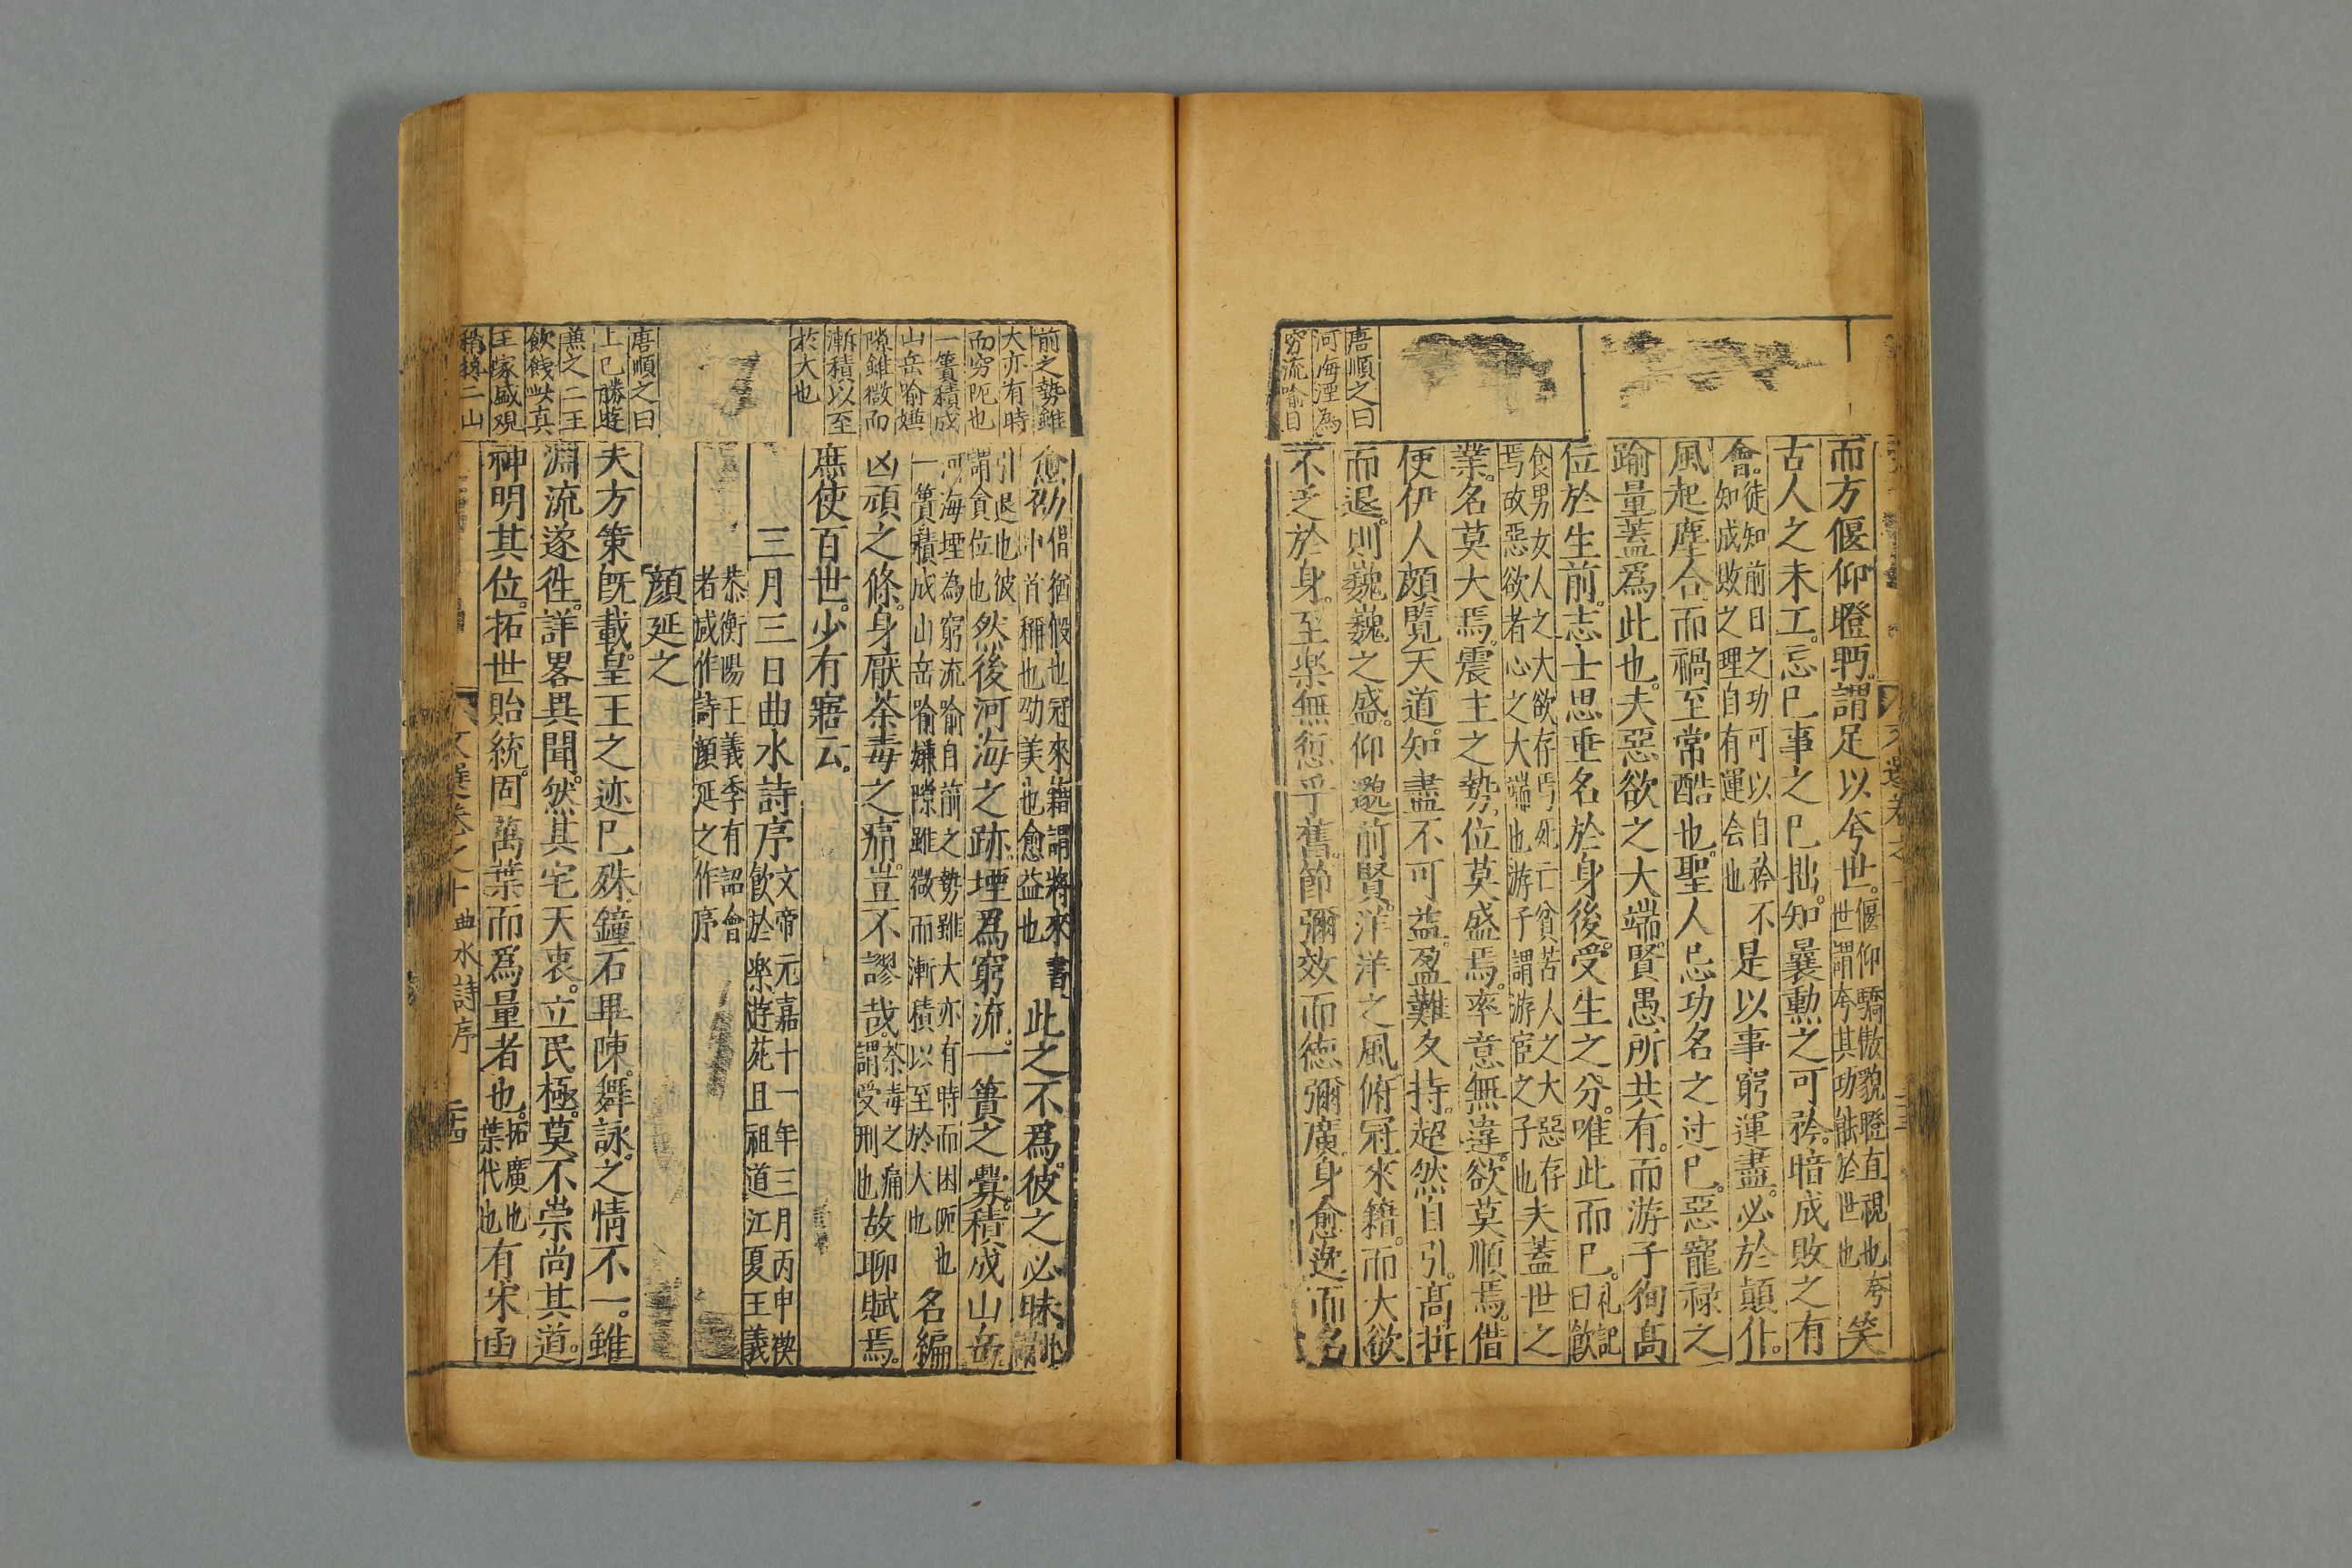 唐順之曰
河海湮為
窮流喻自
而方偃仰瞪眄。謂足以夸世。偃仰驕傲貌瞪直視也夸世謂夸其功能於世也笑
古人之未工。忘已事之已拙。知曩勲之可矜。暗成敗之有
會。徒知前日之功可以自矜不知成敗之理自有運会也是以事窮運盡。必於顛仆。
風起塵合。而禍至常酷也。聖人忌功名之过已。惡寵禄之
踰量蓋爲此也。夫惡欲之大端。賢愚所共有。而游子徇髙
位於生前。志士思垂名於身後。受生之分。唯此而已。礼記曰飲
食男女人之大欲存焉死亡貧苦人之大惡存焉故惡欲者心之大端也游子謂游宦之子也夫蓋世之
業。名莫大焉。震主之勢。位莫盛焉。率意無違。欲莫順焉。借
使伊人頗覽天道。知盡不可益。盈難久持。超然自引。髙揖
而退。則巍巍之盛。仰邈前賢。洋洋之風俯冠來籍。而大欲
不乏於身。至楽無愆乎舊。節彌效而徳彌廣。身愈逸而名
前之勢雖
大亦有時
而窮阨也
一簣積成
山岳喻嫌
隙雖微而
漸積以至
於大也
愈劭借猶假也冠來籍謂將來書引退也彼
謂貪位也然後河海之跡。堙爲窮流。一簣之釁。積成山岳。
河海堙為窮流喻自前之勢雖大亦有時而困阨也一簣積成山岳喻嫌隙雖微而漸積以至於大也名編
凶頑之條。身厭荼毒之痛。豈不謬哉。荼毒之痛謂受刑也故聊賦焉。
庶使百世。少有寤云。
三月三日曲水詩序文帝元嘉十一年三月丙申禊飲於楽遊苑且祖道江夏王義
恭衡陽王義季有詔會者咸作詩顔延之作序
顔延之
唐順之曰
上巳勝遊
兼之二王
飲餞此真
王家盛观
夫方策既載。皇王之迹已殊。鐘石畢陳。舞詠之情不一。雖
淵流遂徃。詳畧異聞。然其宅天衷。立民極。莫不崇尚其道。
神明其位。拓世貽統。固萬葉而爲量者也。拓廣也葉代也有宋函
文選卷之十 曲水詩序